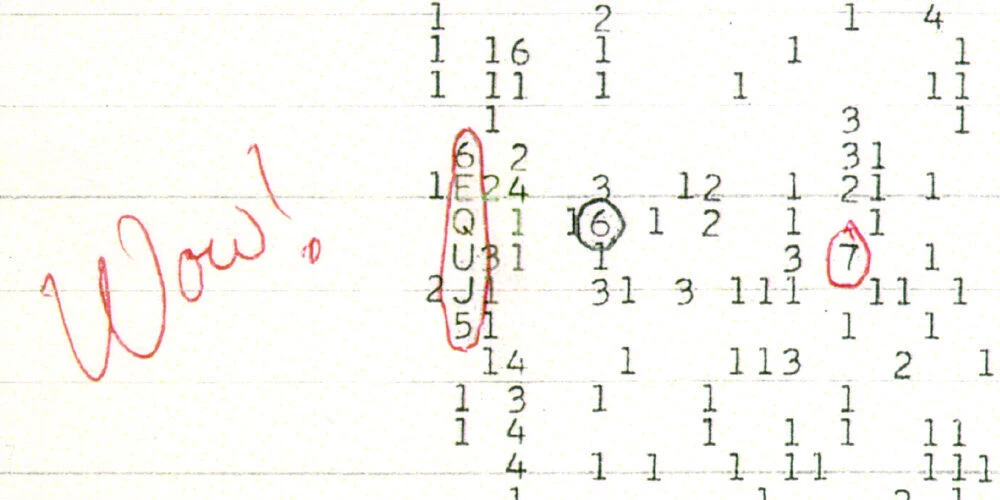 1 2 1 4
1 16 1 1 1
1 11 1 1 11
1 3 1
6 2 31
1E24 3 12 1 21 1
Q 1 16 1 2 1 1
U31 1 3 7 1
2J1 31 3 111 11 1
51 1 1
14 1 113 2 1
1 3 1 1 1
1 4 1 1 1 11
4 1 1 1 11 111
Wow!